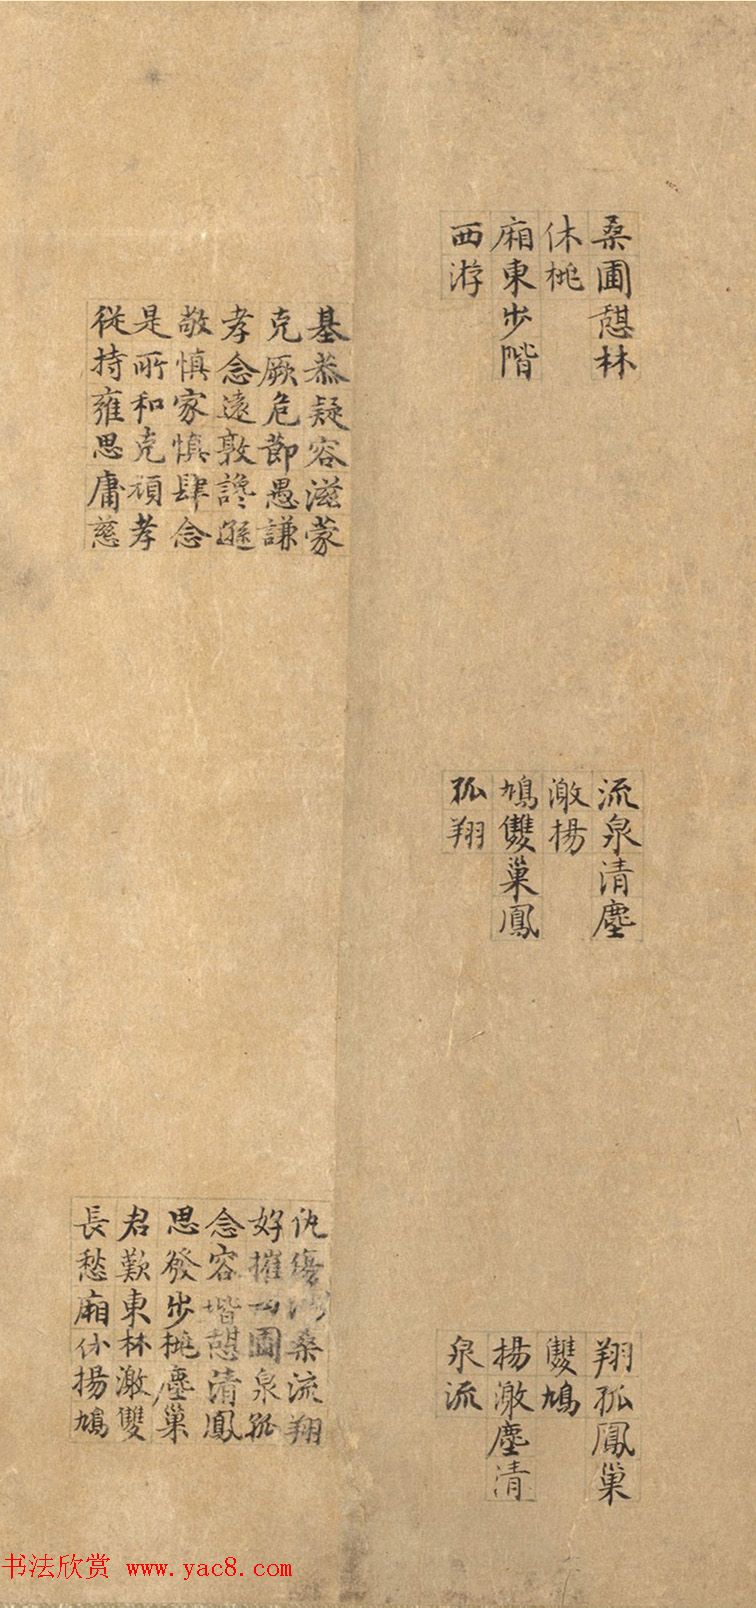 桑圃憇林
休桃
廂東步階
西游
流泉清塵
激揚
鳩雙巢鳳
孤翔
翔孤鳳巢
雙鳩
揚激塵清
泉流
基恭疑容滋蒙
克厥危節愚謙
孝念遠敦讒遜
敬慎家慎肆念
是所和克頑孝
從持雍思庸慈
仇桑流翔
好摧西圃泉孤
念容階憇清鳳
思發步桃塵巢
君歎東林激雙
長愁廂休揚鳩
书法欣赏 www.yac8.com